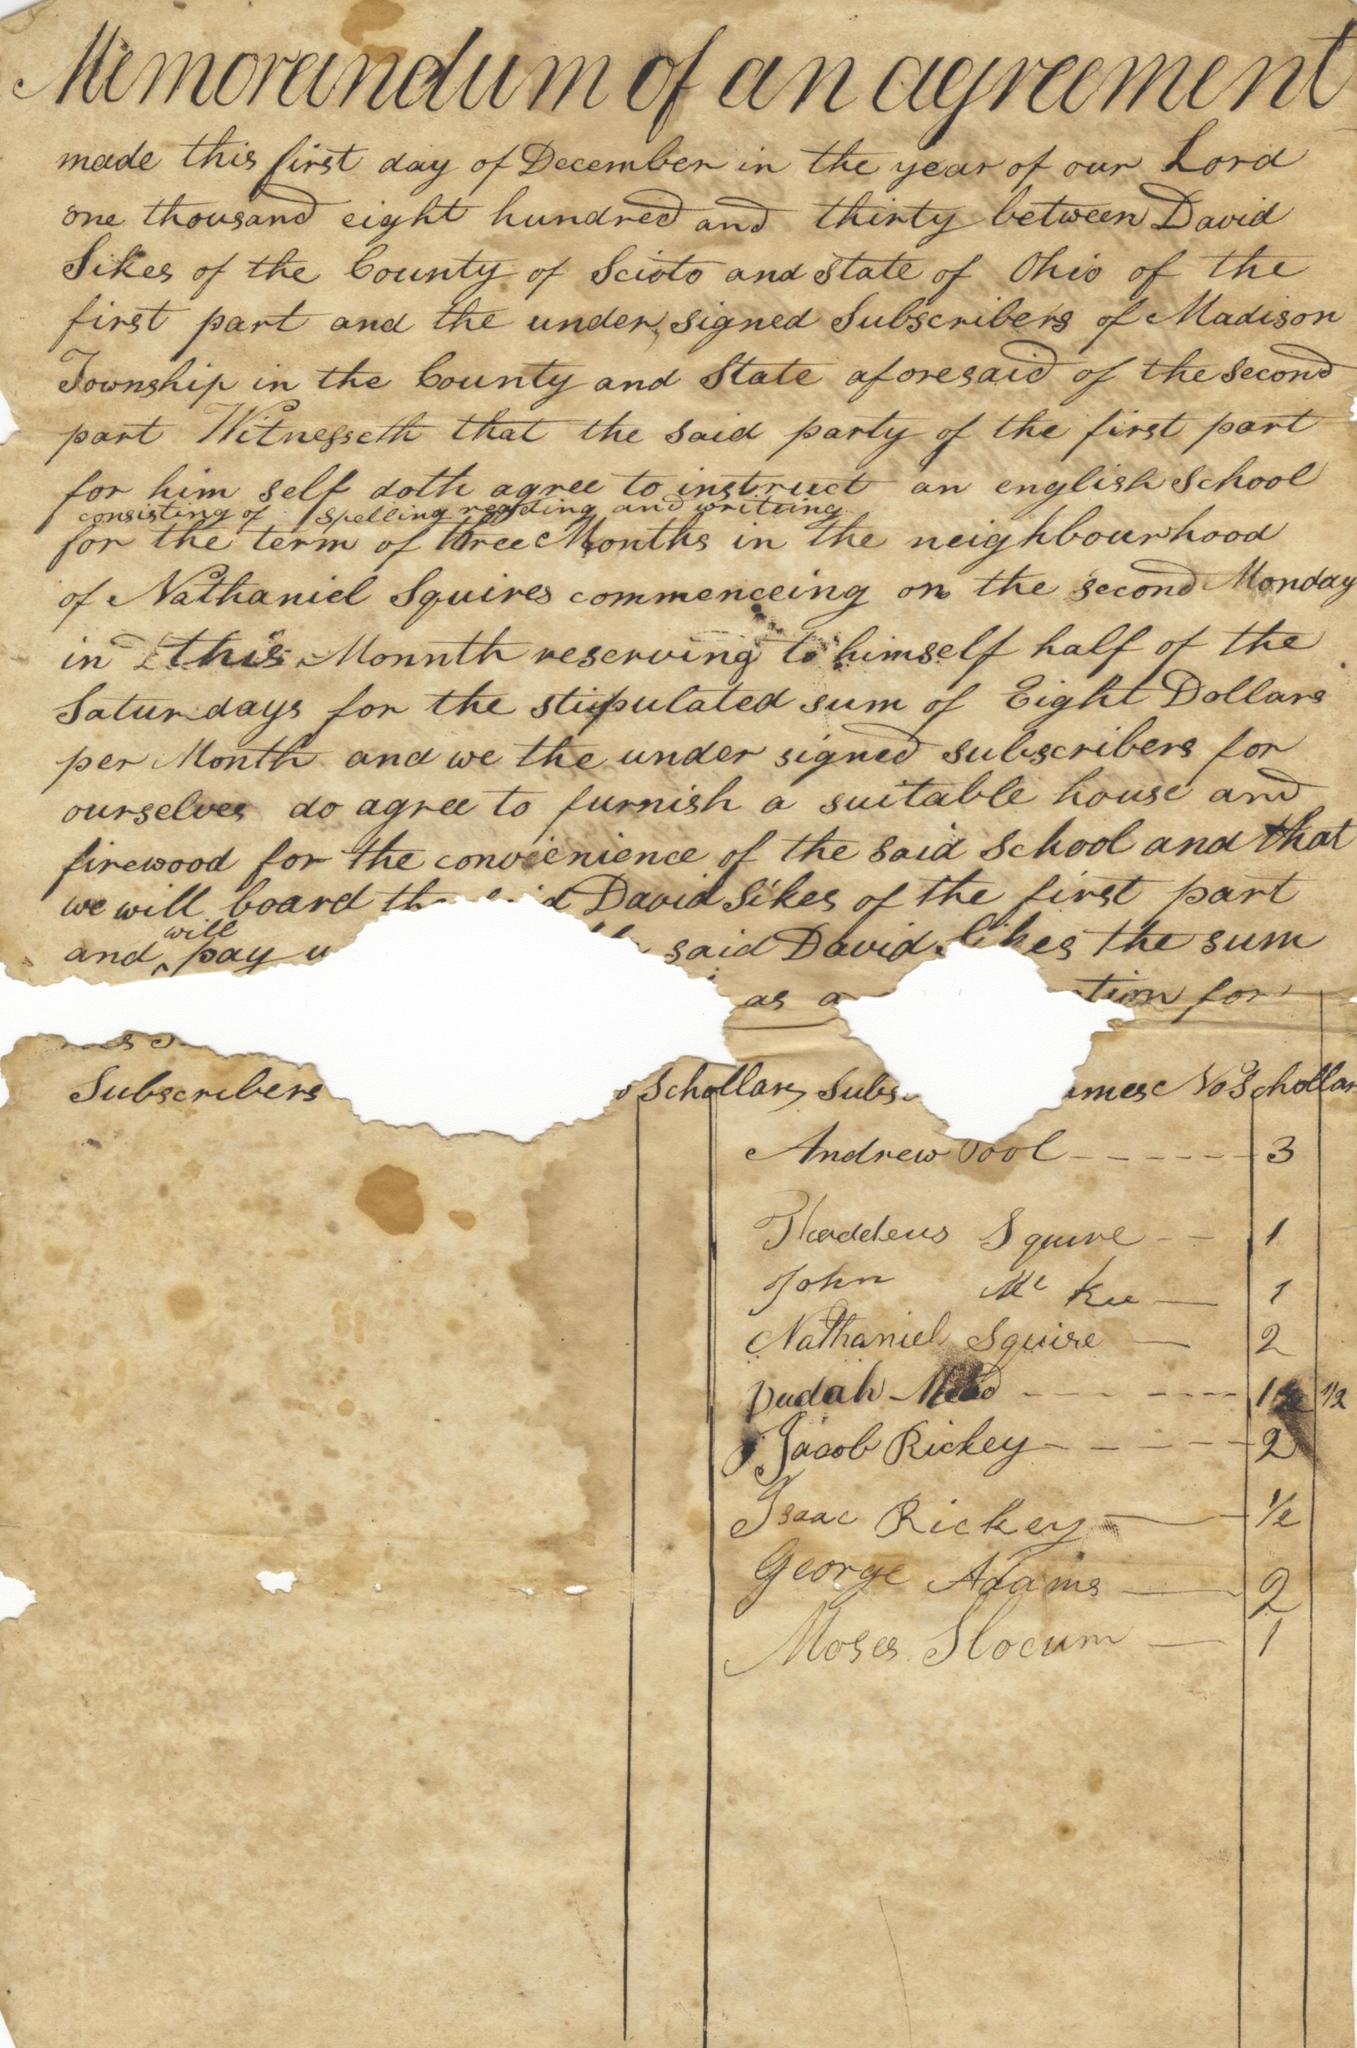 Memorandum of an agreement
made this first day of December in the year of our Lord
one thousand eight hundred and thirty between David
Sikes of the County of Scioto and State of Ohio of the
first part and the under signed Subscribers of Madison
Township in the County and State aforesaid of the second
part Witnesseth that the said party of the first part
for him self doth agree to instruct an english School
consisting of Spelling reading and writeing
for the term of three Months in the neighbourhood
of Nathaniel Squires commenceing on the second Monday
in this Monnth reserving to himself half of the
Saturdays for the stipulated sum of Eight Dollars
per Month and we the under signed subscribers for
ourselves do agree to furnish a suitable house and
firewood for the convienience of the said School and that
we will board the said David Sikes of the first part
will
and pay said David Sikes the sum
as a for
Subscribers Schollars Subs ames No Schollar
Andrew Pool 3
Thaddeus Squire 1
John Mc Kee 1
Nathaniel Squire 2
Judah 1 1/2
Jacob Rickey 2
Isaac Rickey 1/2
George Adams 2
Moses Slocum 1